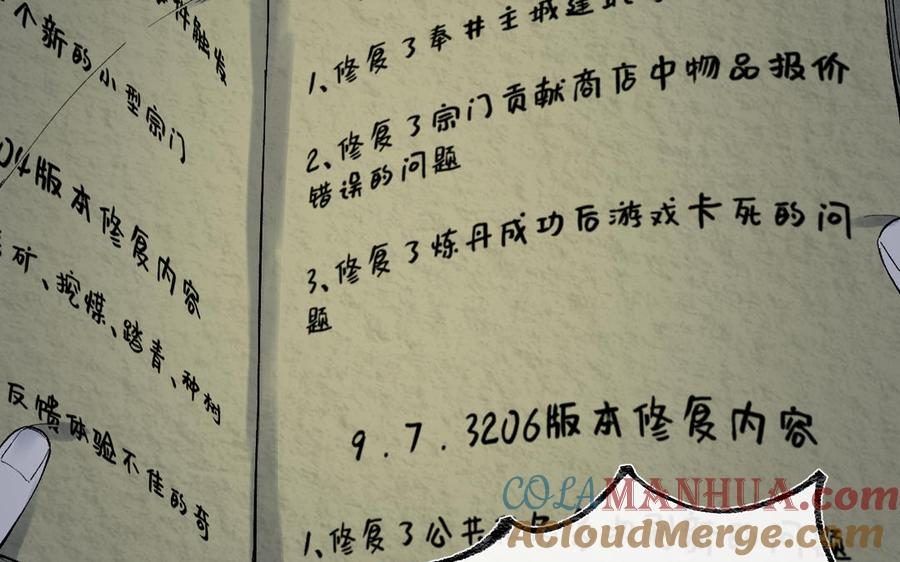 件触发
个新的小型宗门
04版本修复内容
矿、挖煤、踏青、种树
反馈体验不佳的奇
1、修复了奉井主城建
2、修复了宗门贡献商店中物品报价
错误的问题
3、修复了炼丹成功后游戏卡死的问
题
9.7.3206版本修复内容
1、修复了公共
题
COLAMANHUA.com
AcloudMerge.com